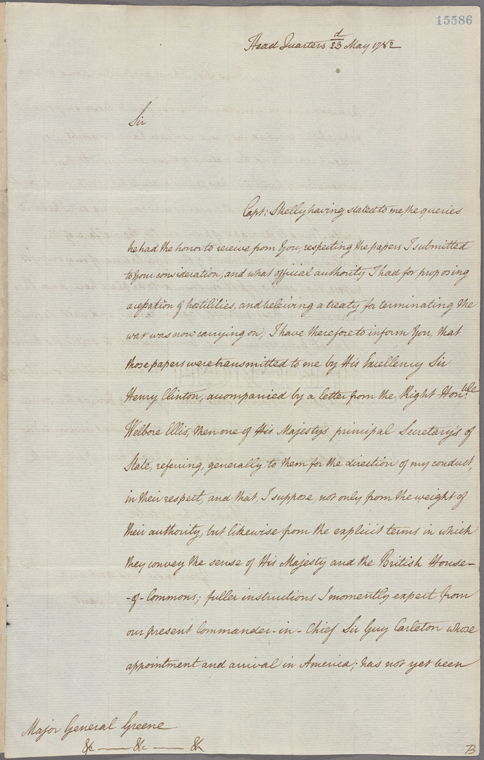 15586
Head Quarters 23d May 1782
Sir
Capt: Skelly having stated to me, the queries
he had the honor to receive from You, respecting the papers I submitted
to your consideration, and what official authority I had for proposing
a cessation of hostilities, and beleiving a treaty for terminating the
war was now carrying on; I have therefore to inform You, that
those papers were transmitted to me by His Excellency Sir
Henry Clinton, accompanied by a letter from the, Right Honble
Welbore Ellis, then one of His Majesty's principal Secretary's of
State, referring, generally to them for the direction of my conduct,
in their respect, and that, I suppose not only from the weight of
their authority, but likewise from the explicit terms in which
they convey the sense of His Majesty and the British House-
-of-Commons; fuller instructions I momently expect from
our present Commander-in-Chief Sir Guy Carleton whose
appointment and arrival in America; has not yet been
Major General Greene
&c — &c — &c